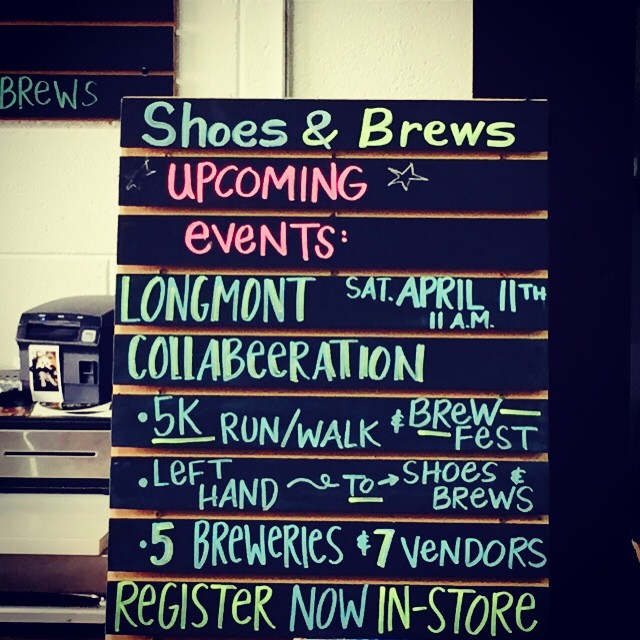 BREWS
Shoes & Brews
UPCOMING
EVENTS:
LONGMONT SAT. APRIL 11TH
11 A.M.
COLLABEERATION
•5K RUN/WALK & BREW-FEST
•LEFT HAND ~→ TO → SHOES & BREWS
•5 BREWERIES & 7 VENDORS
REGISTER NOW IN-STORE